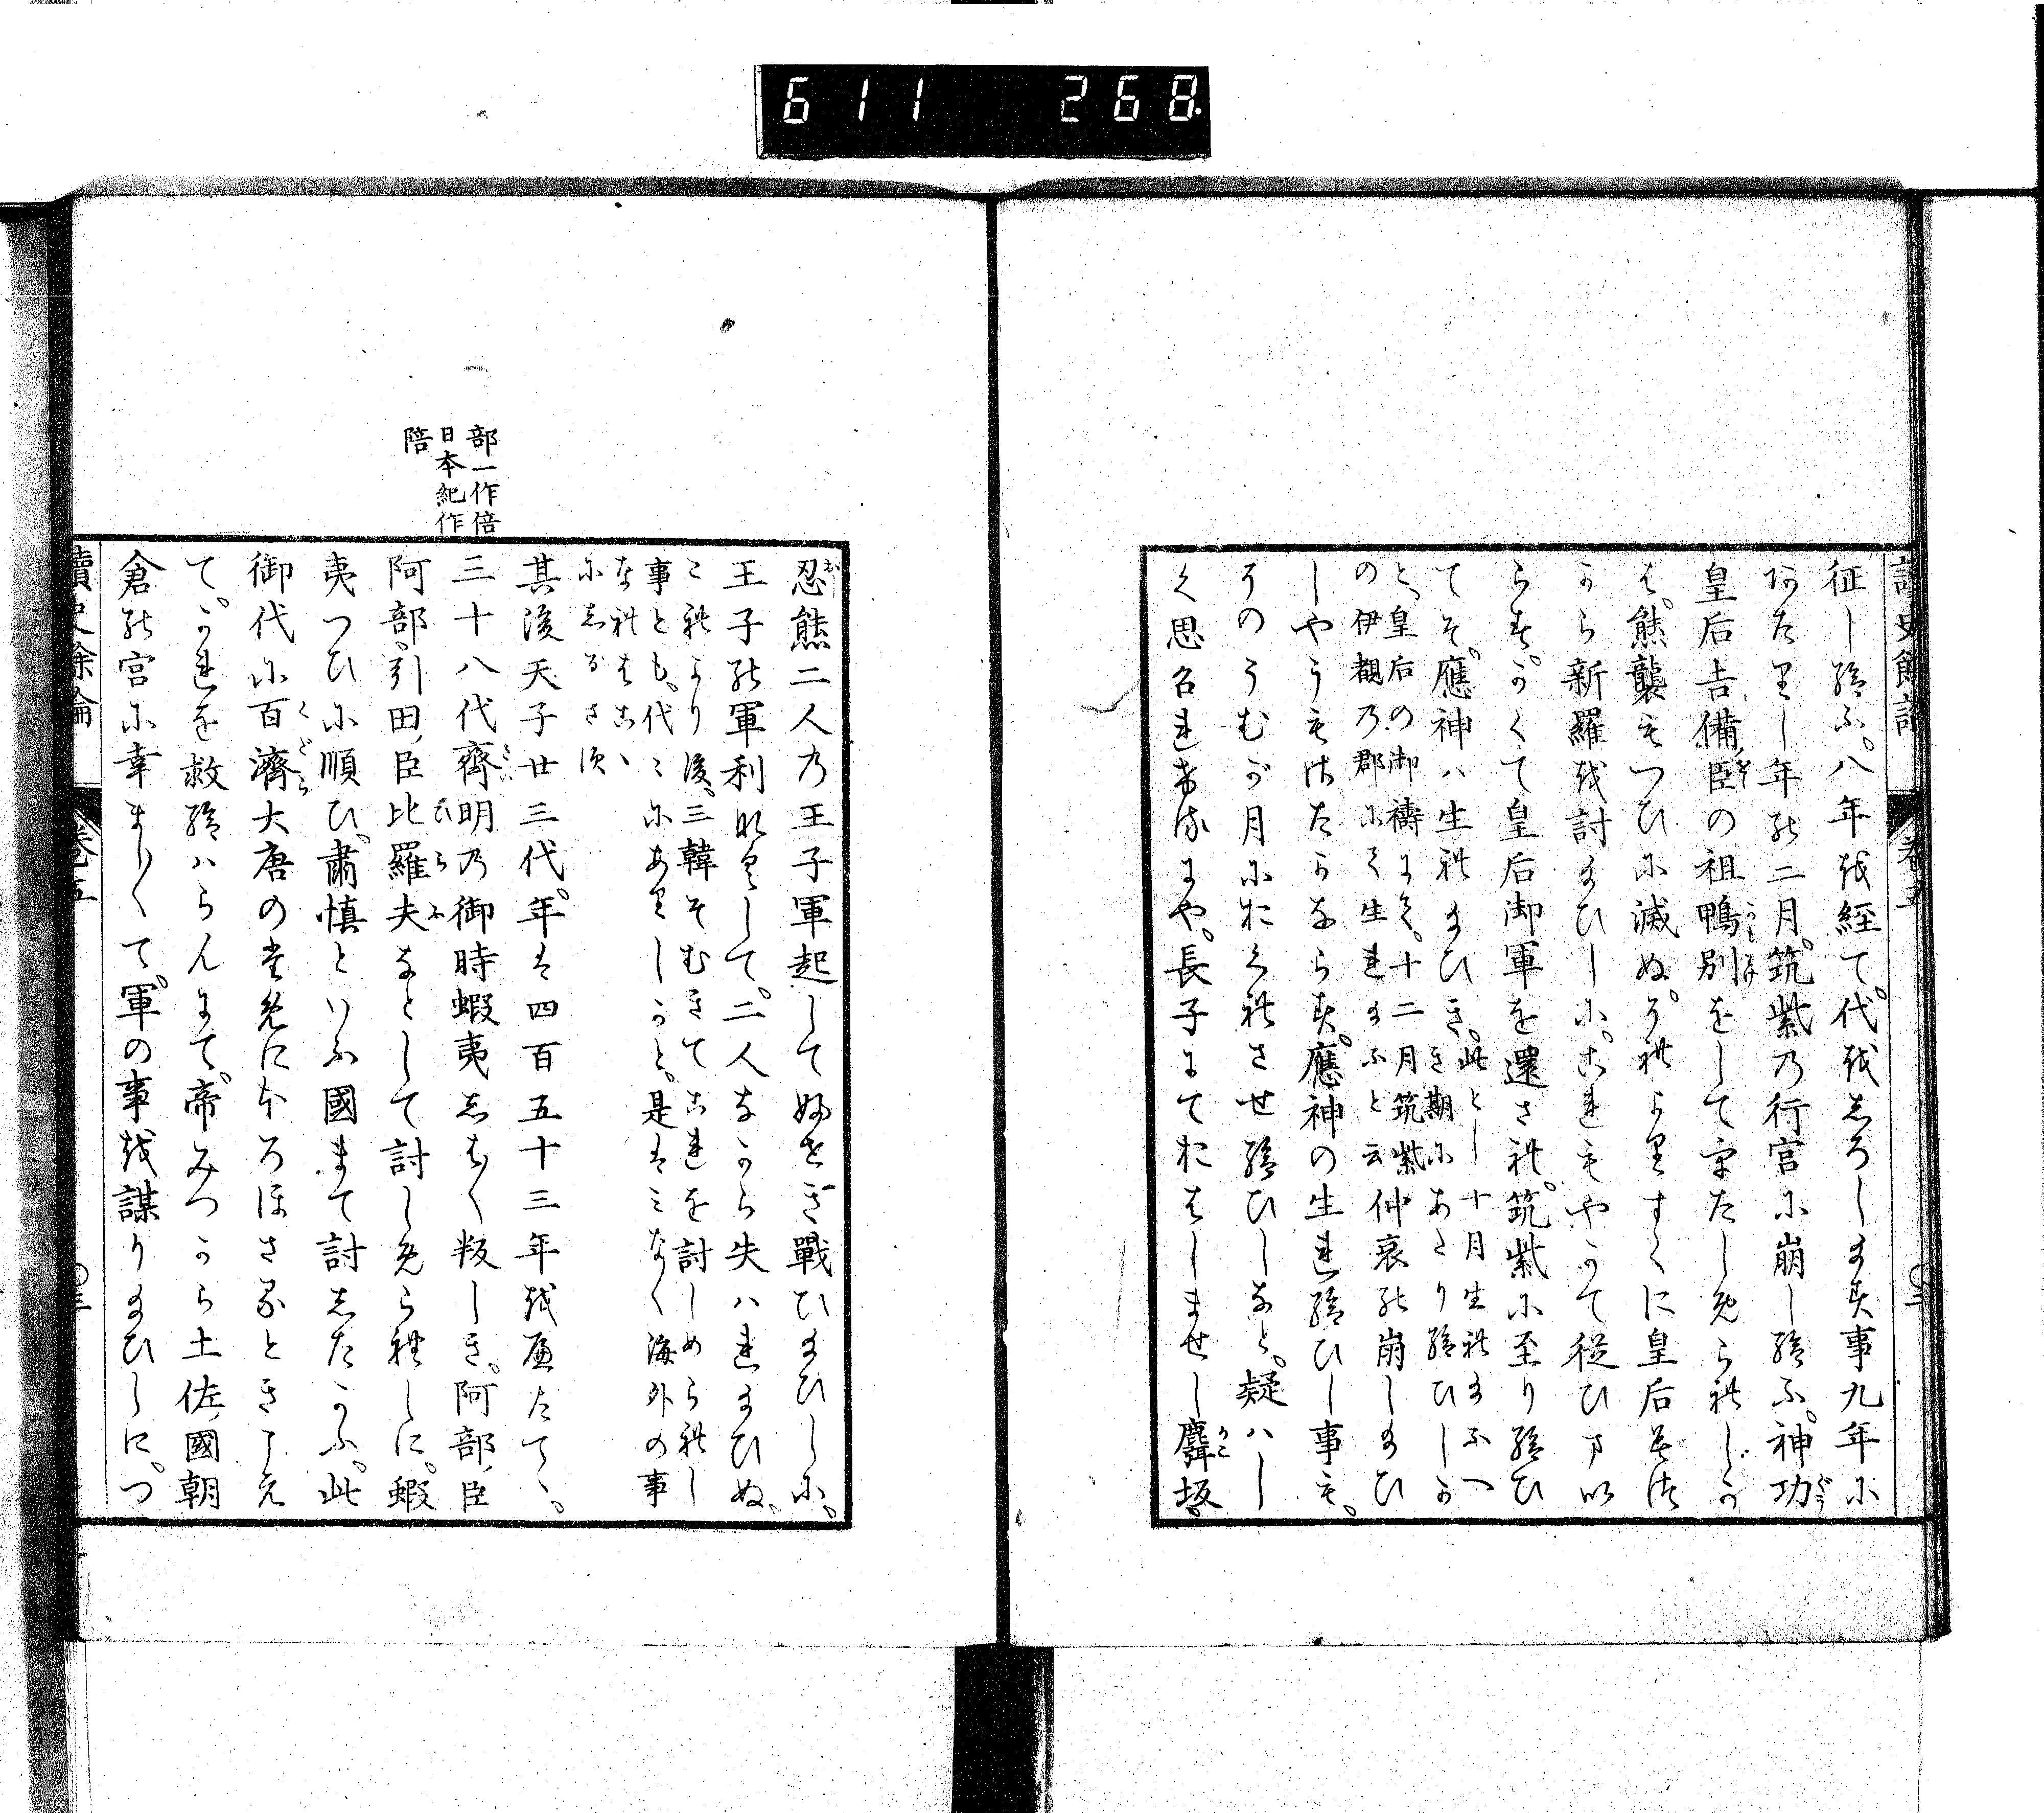 611 268
讀史餘論 卷五 〇三
征し給ふ。八年を経て。代をしろしめす事九年に
あたりし年の二月。筑紫の行宮に崩し給ふ。神功
皇后吉備臣の祖鴨別をして実たしめられしか
は。熊襲もつひに滅ぬ。それよりすくに皇后みつ
から新羅を討給ひしに。これもやかて従ひまい
らす。かくて皇后御軍を還され。筑紫に至り給ひ
てそ。應神ハ生れ給ひき。此とし十月生れ給ふへ
き期にあたり給ひしか
と、皇后の御禱によて。十二月筑紫
の伊覩の郡にて生れ給ふと云
仲哀の崩し給ひ
しやうもはたかならす。應神の生れ給ひし事も。
そのうむか月におくれさせ給ひしなと。疑ハし
く思召れけるにや。長子にておはしませし麛坂。
忍熊二人の王子軍起して妨せき戰ひ給ひしに。
王子の軍利なくして。二人なから失ハれ給ひぬ。
これより後、三韓そむきてこれを討しめられし
事とも。代々にありしかと。是はみなく海外の事
なれはこゝ
にしるさす
其後天子廿三代。年は四百五十三年を歴たて、。
三十八代齊明の御時蝦夷しはく叛しき。阿部臣
阿部引田臣比羅夫なとして討しめられしに。蝦
夷つひに順ひ。肅慎といふ國まて討したかふ。此
御代に百濟大唐の為めにほろほさるときこえ
て。かれを救給ハらんとて。帝みつから土佐國朝
倉の宮に幸まりくて。軍の事を謀り給ひしに。つ
部一作倍
日本紀作
陪
讀史餘論 卷五 〇三